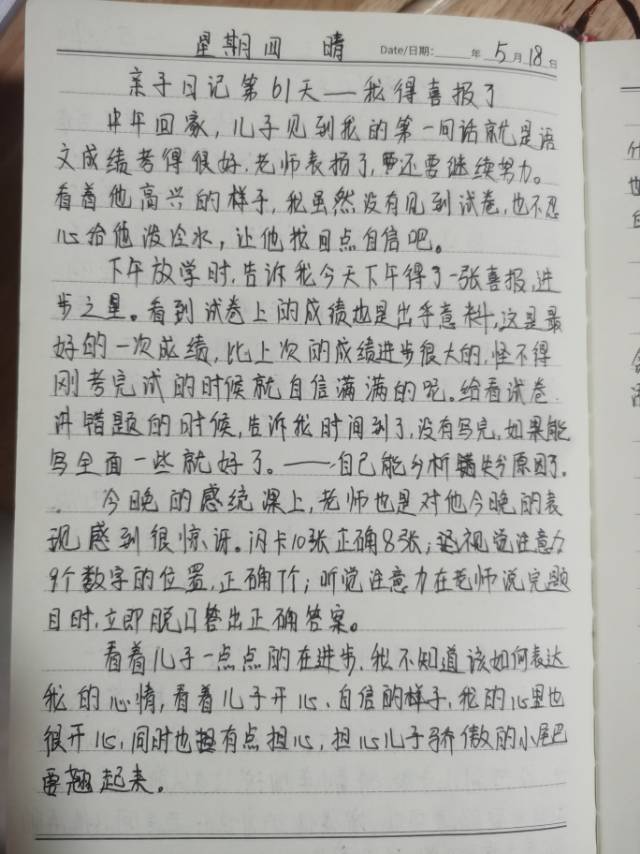 星期四 晴 Date/日期: 年 5月18日
亲子日记第61天——我得喜报了
中午回家,儿子见到我的第一句话就是语
文成绩考得很好.老师表扬了,还要继续努力。
看着他高兴的样子,我虽然没有见到试卷,也不忍
心给他泼冷水,让他找回点自信吧。
下午放学时.告诉我今天下午得了一张喜报,进
步之星。看到试卷上的成绩也是出乎意料,这是最
好的一次成绩,比上次的成绩进步很大的,怪不得
刚考完试的时候就自信满满的呢。给看试卷.
讲错题的时候,告诉我时间到了,没有写完,如果能
写全面一些就好了。——自己能分析错失分原因了.
今晚的感统课上,老师也是对他今晚的表
现感到很惊讶。闪卡10张正确8张;视觉注意力
9个数字的位置,正确7个;听觉注意力在老师说完题
目时.立即脱口答出正确答案。
看着儿子一点点的在进步.我不知道该如何表达
我的心情,看着儿子开心、自信的样子,我的心里也
很开心,同时也有点担心,担心儿子骄傲的小尾巴
要翘起来。